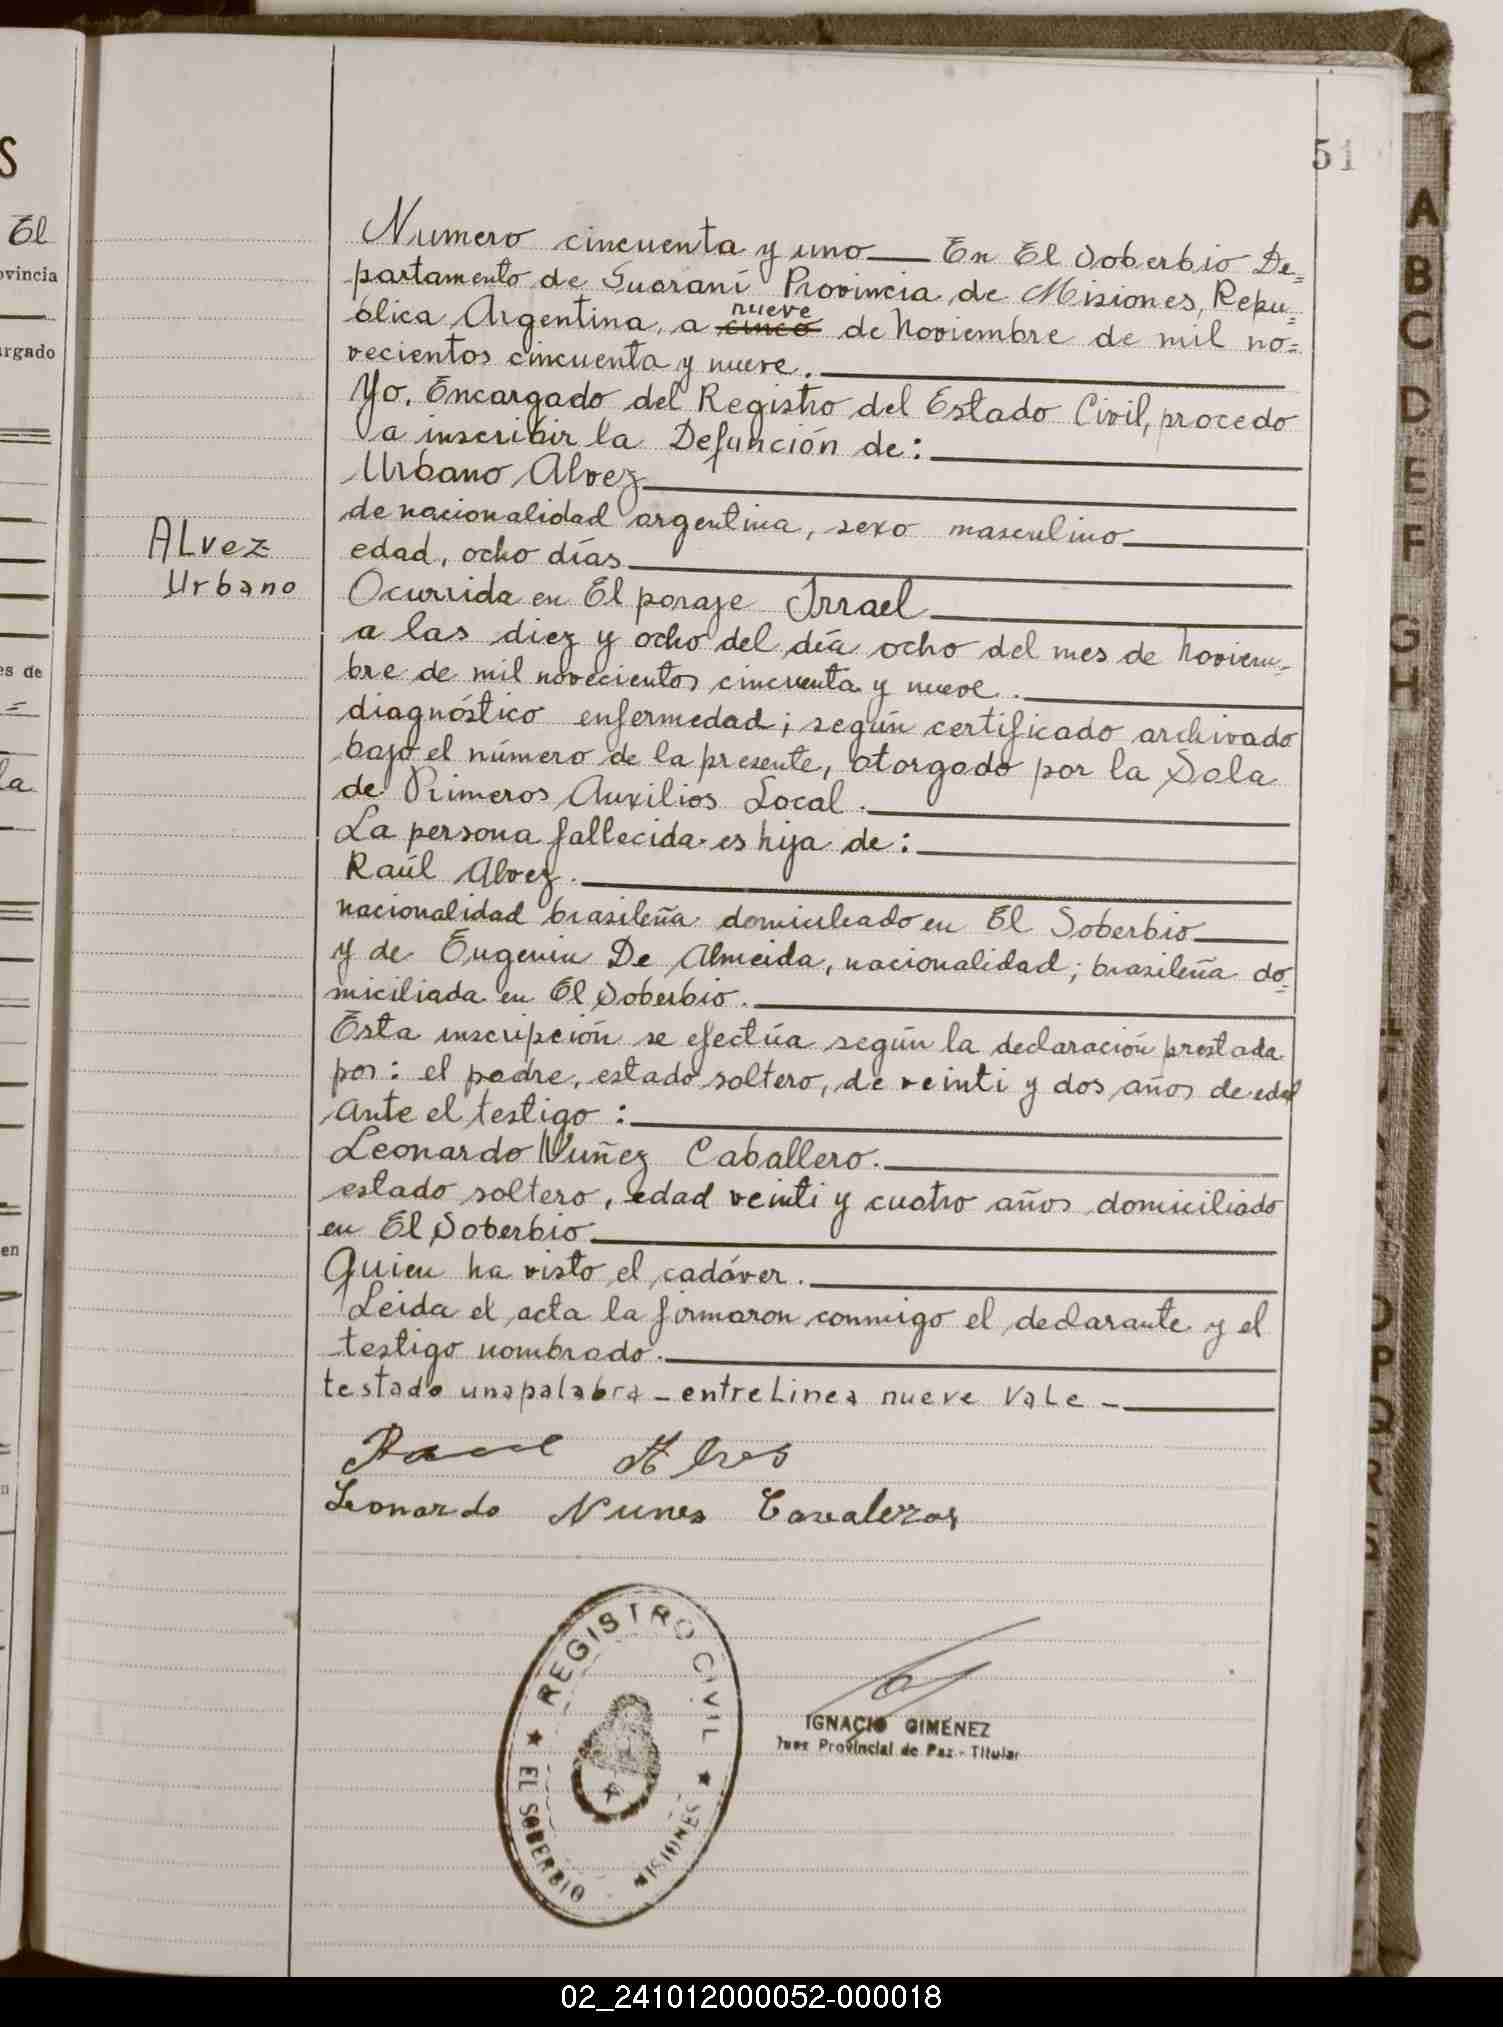 51
S
El
ovincia
argado
es de
la
en
Alvez
Urbano
Numero cincuenta y uno — En El Soberbio De=
partamento de Guaraní Provincia de Misiones, Repu=
blica Argentina, a cinco nueve de Noviembre de mil no=
vecientos cincuenta y nueve.
Yo, Encargado del Registro del Estado Civil, procedo
a inscribir la Defunción de:
Urbano Alvez
de nacionalidad argentina, sexo masculino
edad, ocho días
Ocurrida en El paraje Irrael
a las diez y ocho del día ocho del mes de Noviem=
bre de mil novecientos cincuenta y nueve.
diagnóstico enfermedad; según certificado archivado
bajo el número de la presente, otorgado por la Sala
de Primeros Auxilios Local.
La persona fallecida es hija de:
Raúl Alvez.
nacionalidad brasileña domiciliado en El Soberbio
y de Eugenia De Almeida, nacionalidad; brasileña do=
miciliada en El Soberbio.
Esta inscripción se efectúa según la declaración prestada
por: el padre, estado soltero, de veinti y dos años de edad
ante el testigo:
Leonardo Nuñez Caballero.
estado soltero, edad veinti y cuatro años domiciliado
en El Soberbio
Quien ha visto el cadáver.
Leida el acta la firmaron conmigo el declarante y el
testigo nombrado.
testado una palabra - entre Linea nueve Vale -
Raul Alves
Leonardo Nunes Cavaleros
REGISTRO CIVIL
EL SOBERBIO MISIONES
IGNACIO GIMENEZ
Juez Provincial de Paz - Titular
A
B
C
D
E
F
G
H
O
P
Q
R
S
02_241012000052-000018